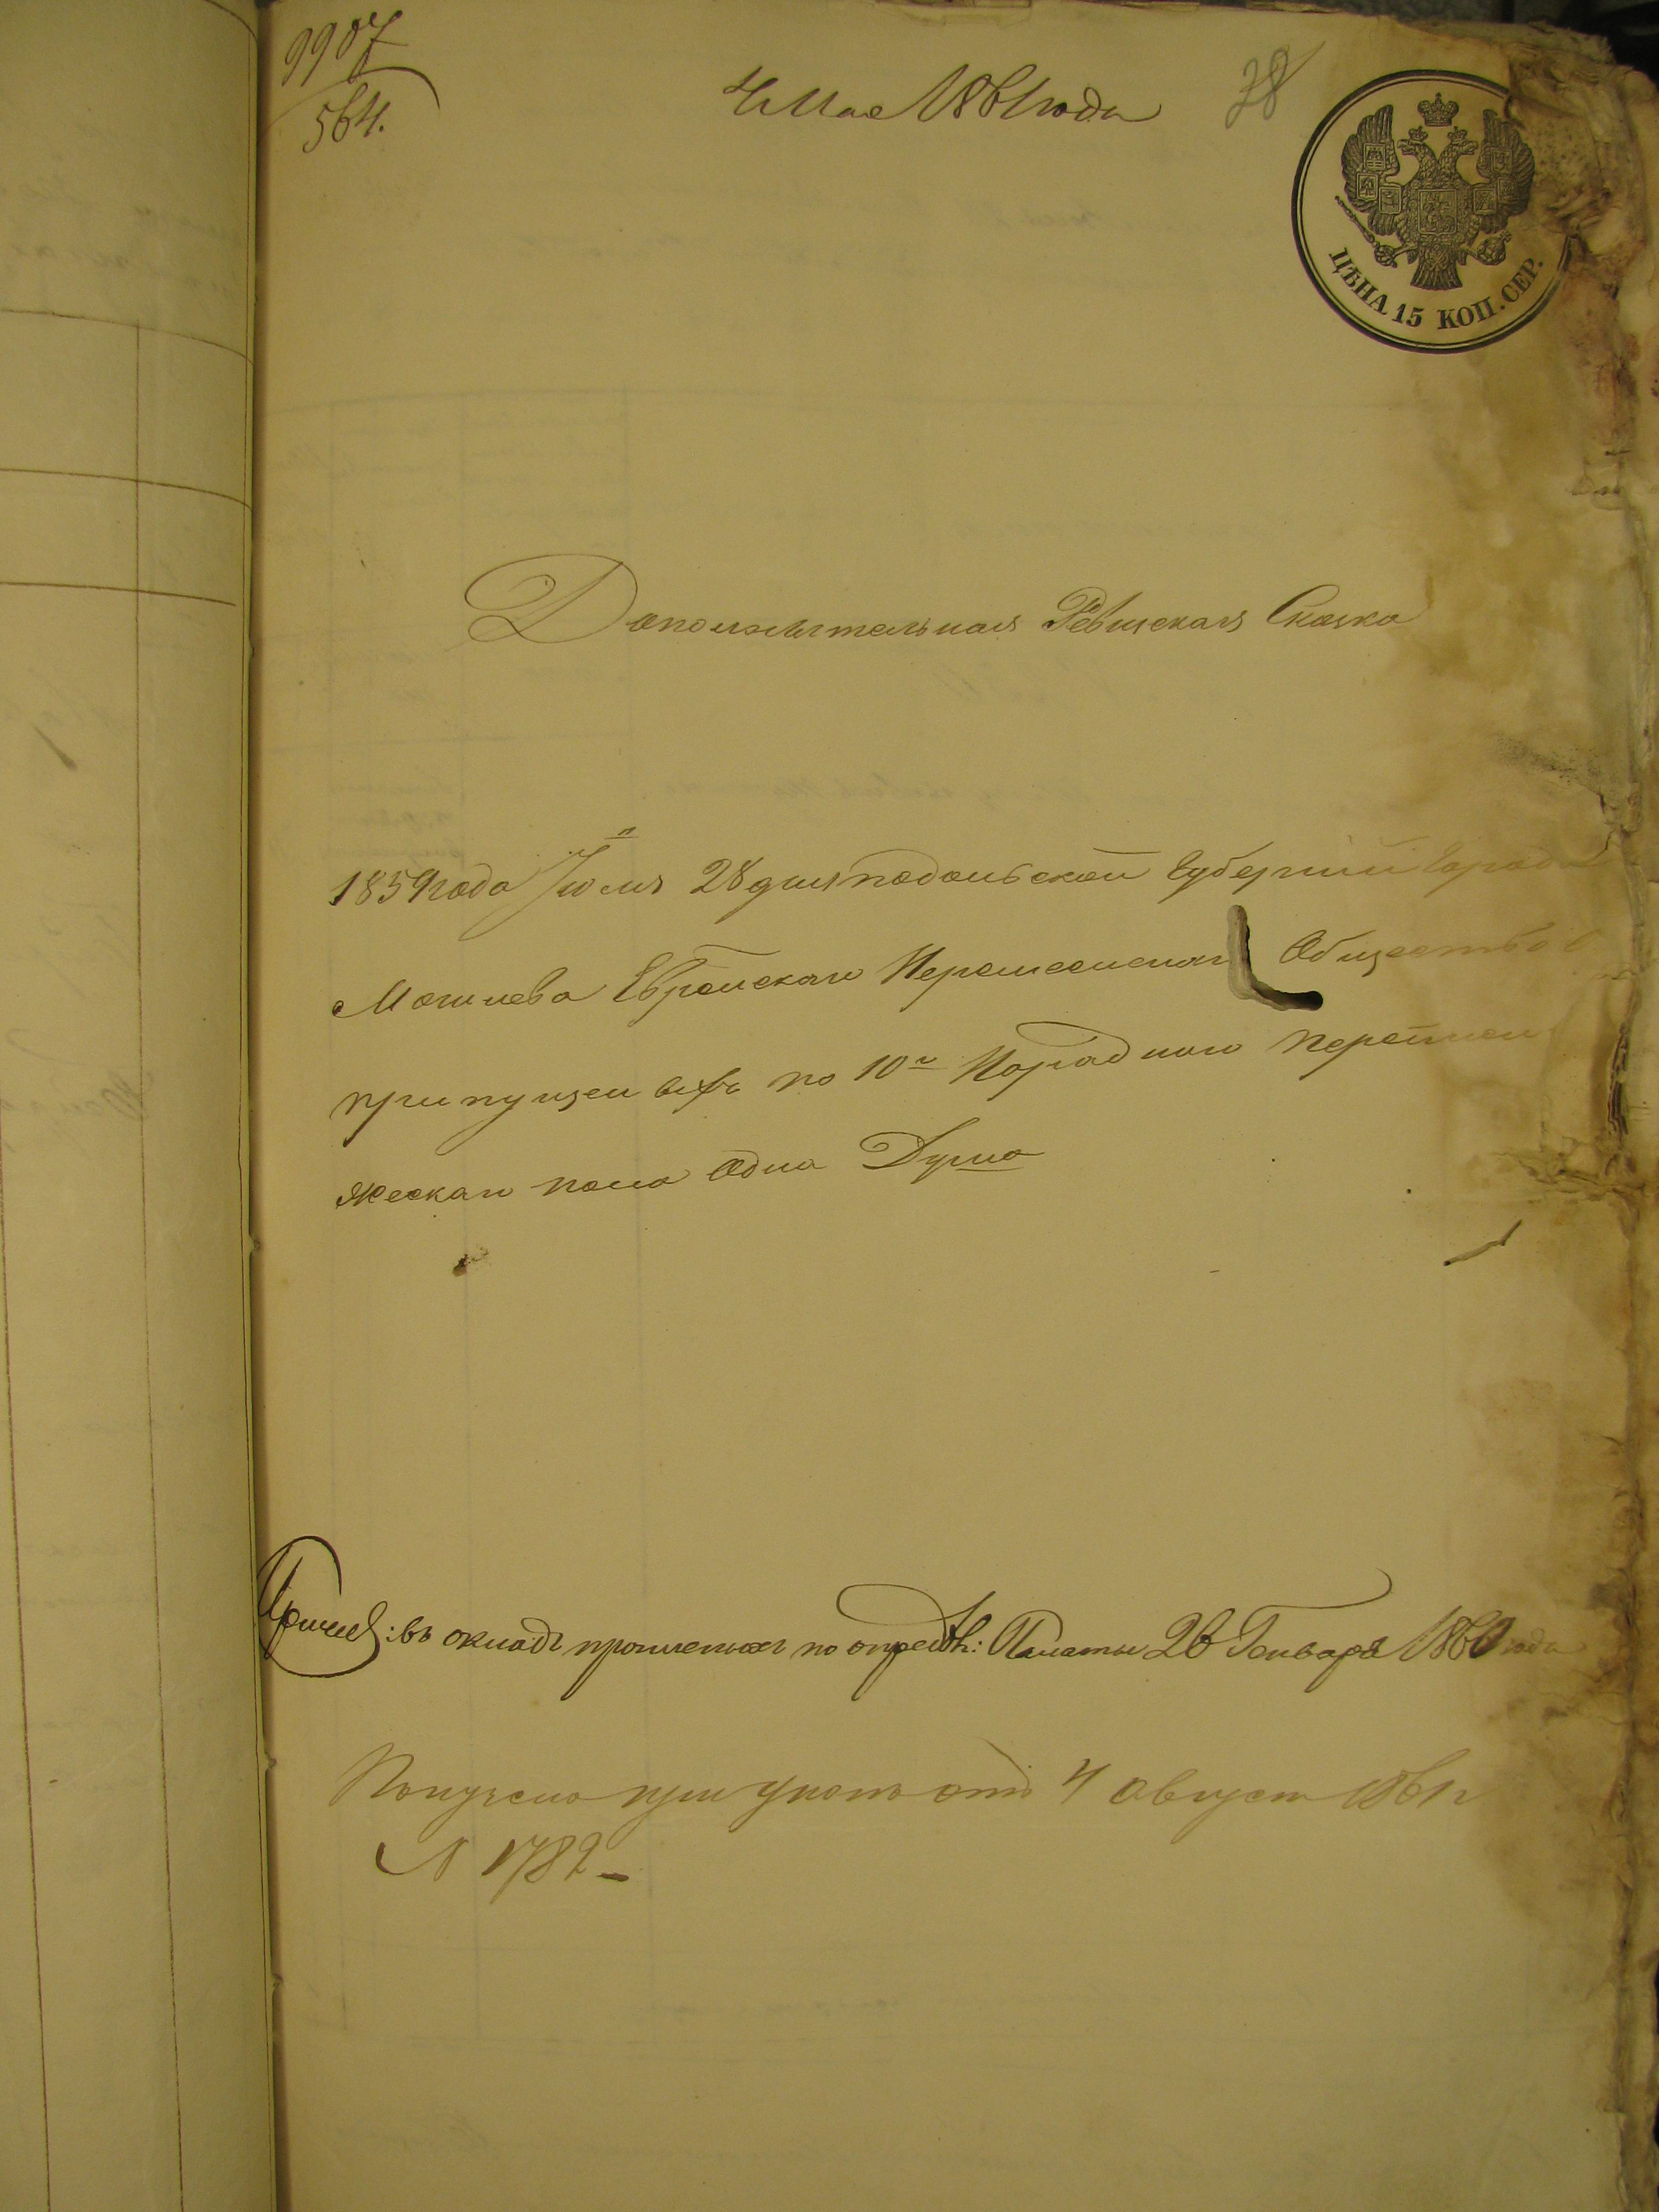 9907
564.
4 Мая 1861 года
38
ЦѢНА 15 КОП. СЕР.
Дополнительная Ревиская Сказка
1859 года Июля 28 дня подольской Губернии Города
Могилева Еврейскаго Общества
по 10й Народной переписи
жескаго пола Одна Душа
въ окладъ по опредѣл: Палаты 26 Генваря 1860 года
Получено при отъ 4 август 1861 г
N 1782 -